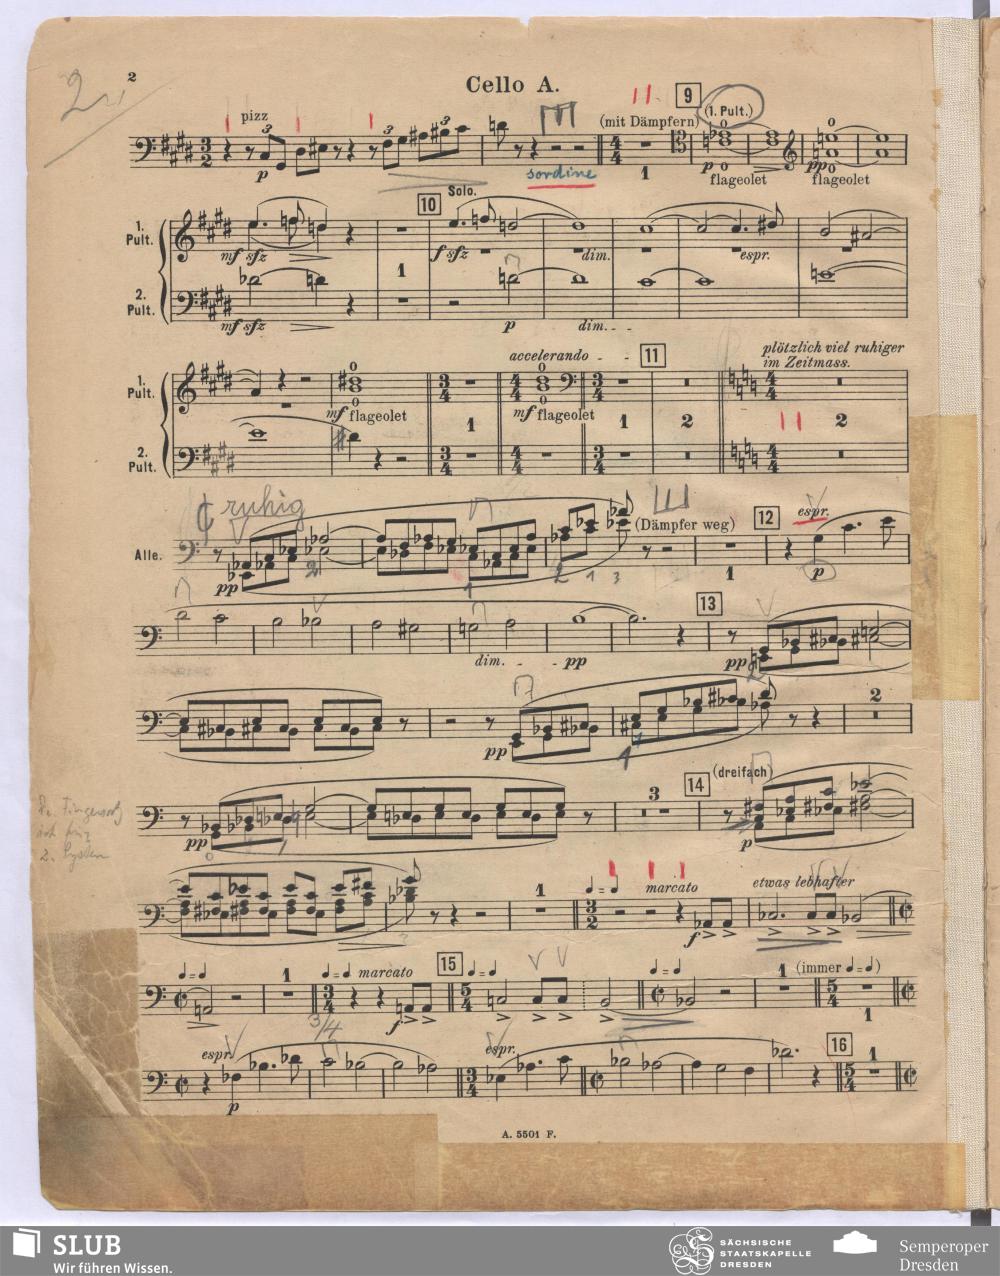 2
2
Cello A.
pizz
3
3
3
p
sordine
(mit Dämpfern)
1
9
(1. Pult.)
p
flageolet
pp
flageolet
10
Solo.
1. Pult.
mf sfz
f sfz
dim.
espr.
1
2. Pult.
mf sfz
p
dim.
accelerando
11
plötzlich viel ruhiger
im Zeitmass.
1. Pult.
mf flageolet
mf flageolet
1
1
2
2
2. Pult.
ruhig
(Dämpfer weg)
12
espr.
Alle.
pp
1
2 1 3
1
p
13
dim.
pp
pp
pp
2
14
(dreifach)
3
pp
p
1
marcato
etwas lebhafter
f
15
1
marcato
1
(immer
f
1
3/4
espr.
espr.
16
1
p
A. 5501 F.
SLUB
Wir führen Wissen.
SÄCHSISCHE
STAATSKAPELLE
DRESDEN
Semperoper
Dresden